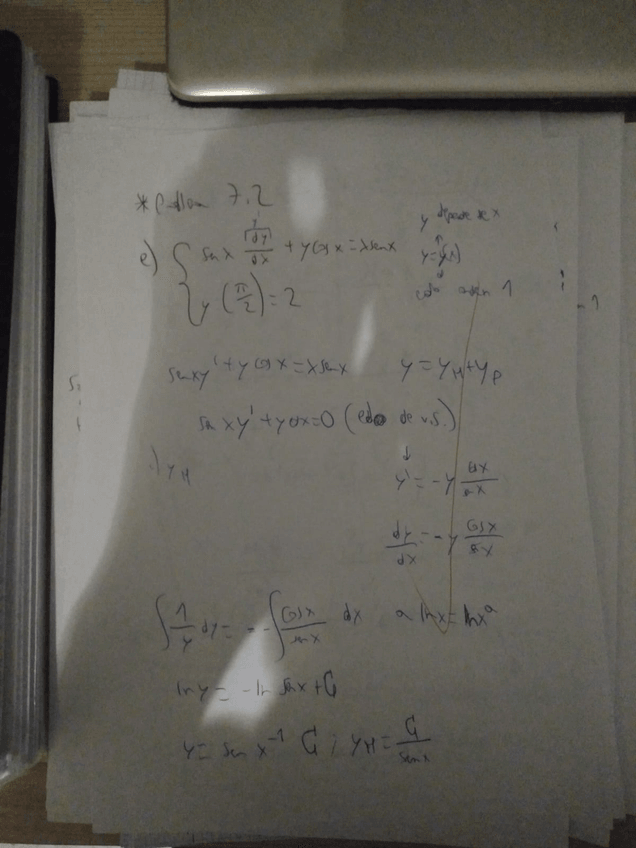 * Problem 7.2
y depende de x
e) { sen x dy/dx + y cos x = x sen x
y = y(x)
y (π/2) = 2
edo orden 1
sen x y' + y cos x = x sen x y = yH + yP
sen x y' + y cos x = 0 (edo de v.s.)
·) yH y' = -y cos x / sen x
dy/dx = -y cos x / sen x
∫ 1/y dy = - ∫ cos x / sen x dx a ln x = ln x^a
ln y = - ln sen x + C1
y = sen x^-1 C1 ; yH = C1 / sen x